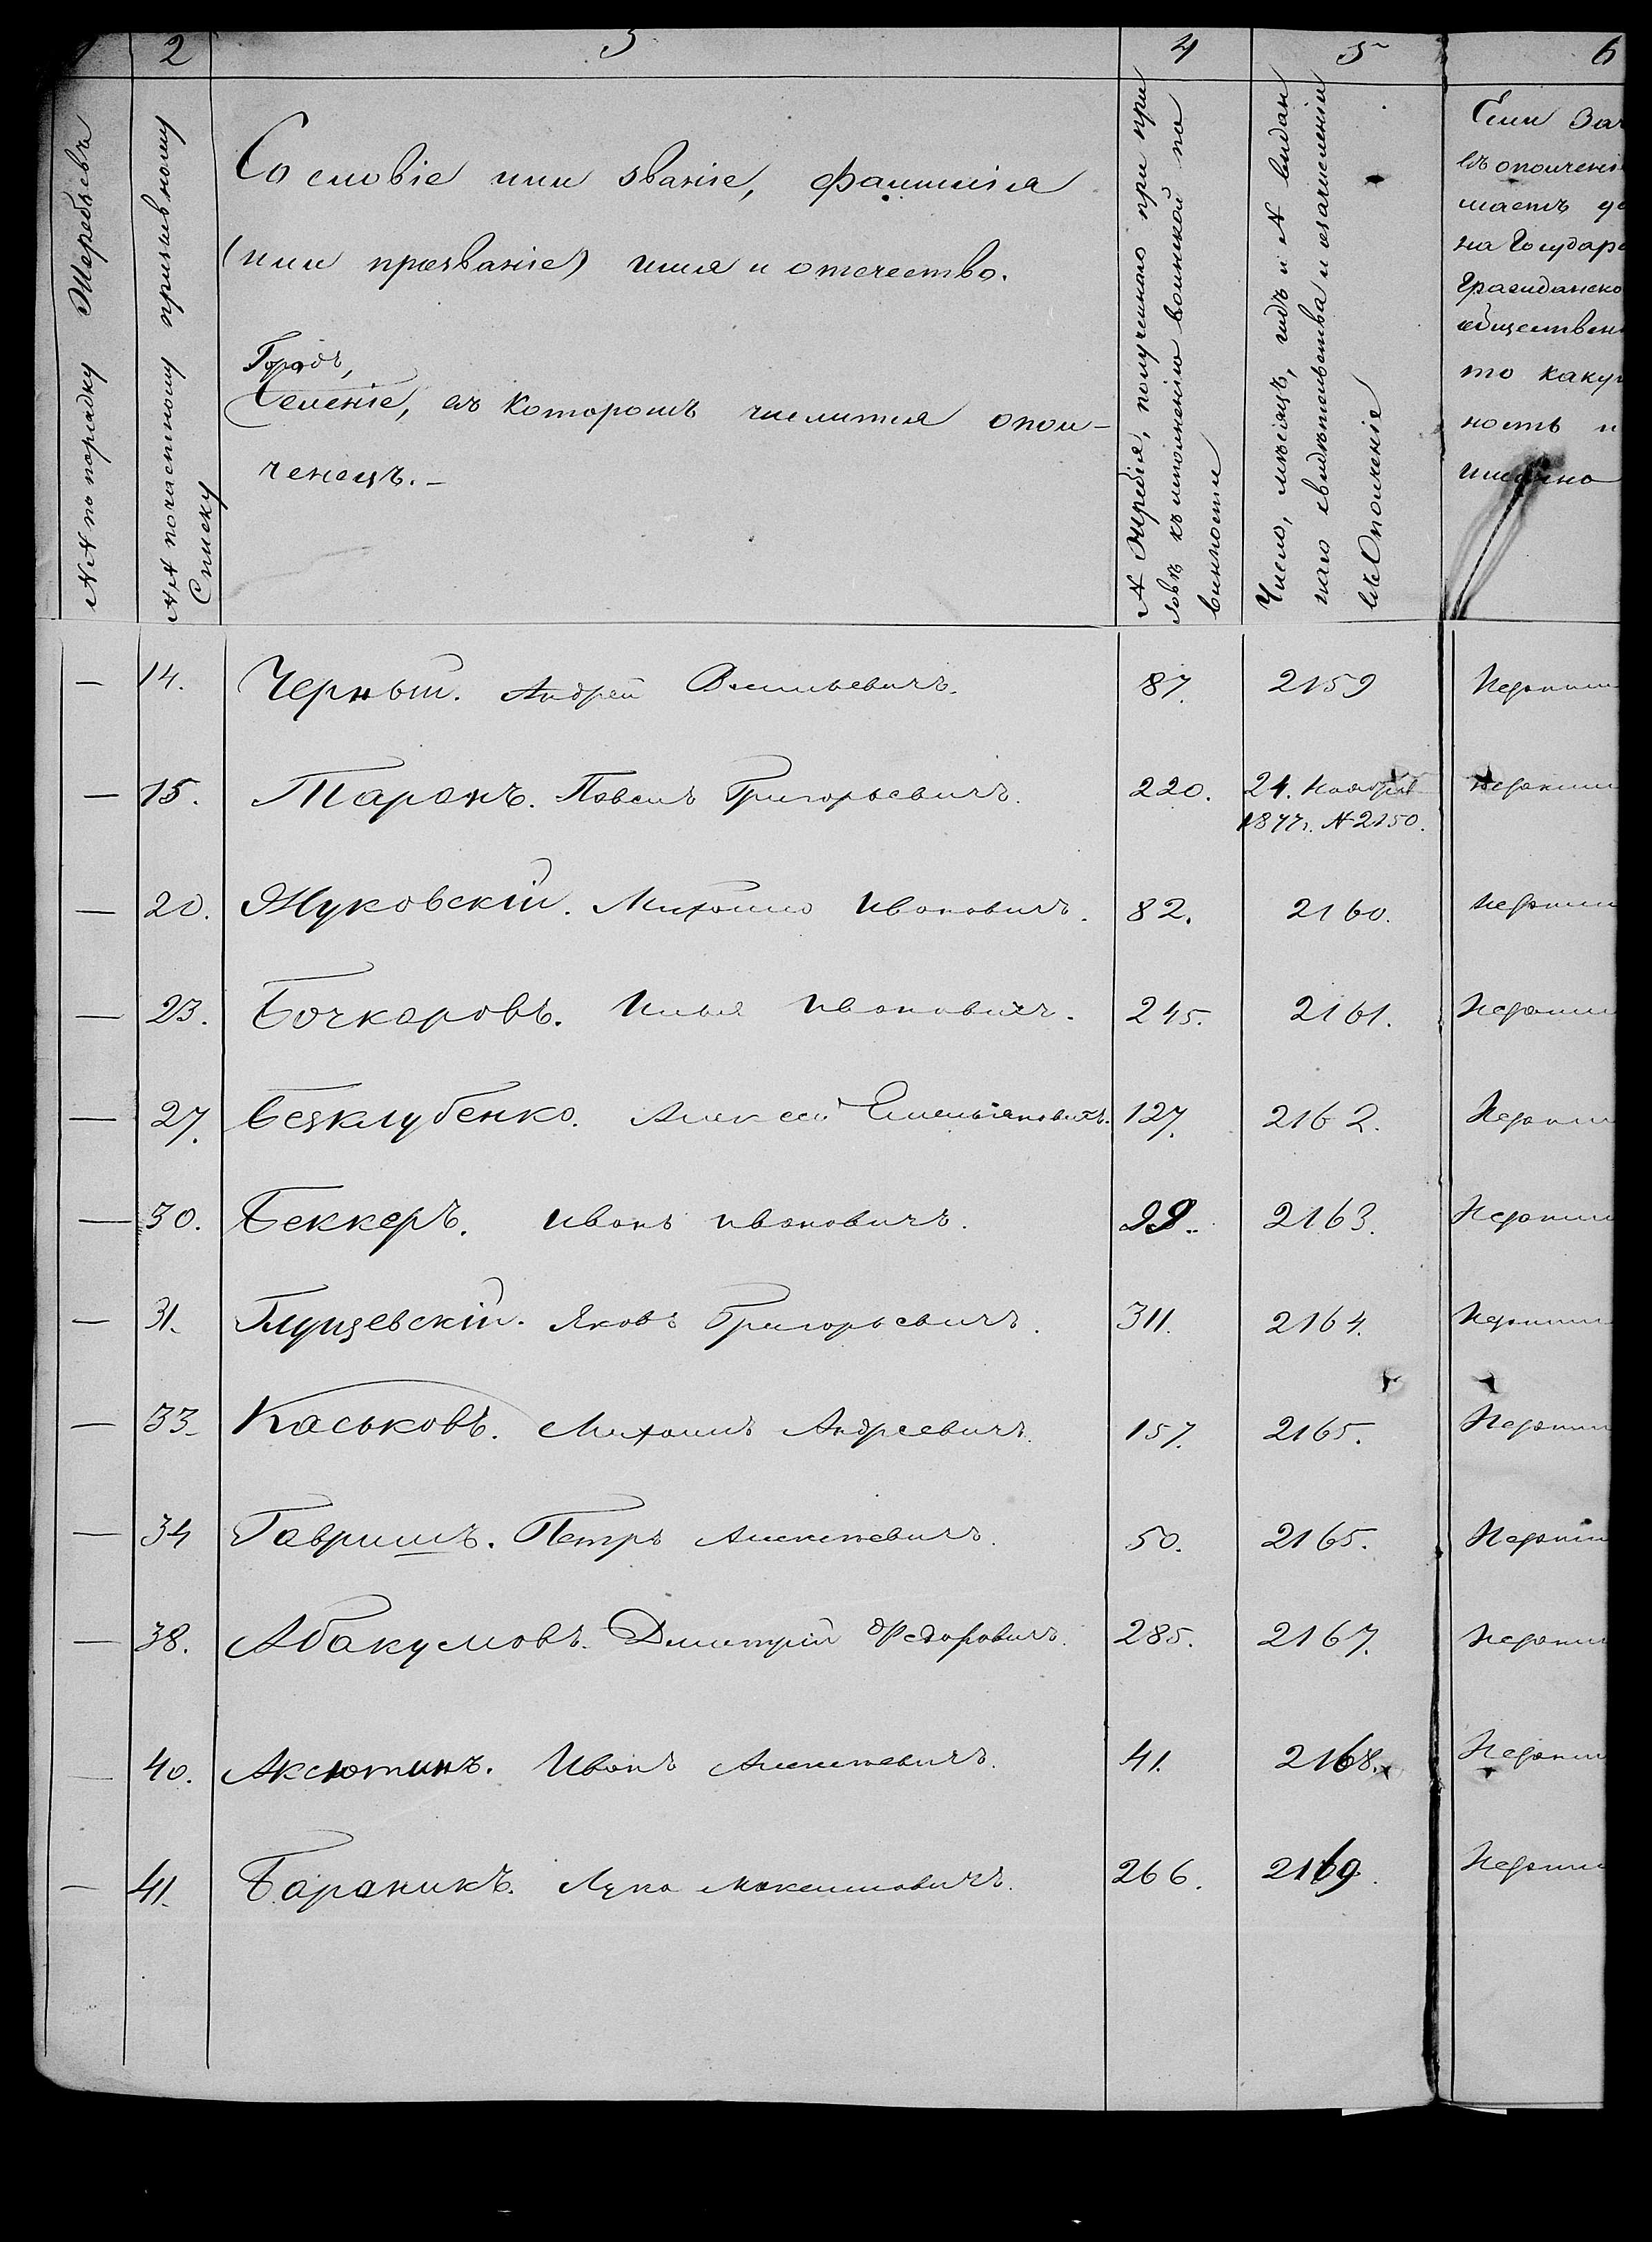 1 2 3 4 5 6
№№ по порядку Жеребьевъ
№№ по частному призывному
Списку
Сословіе или званіе, фамилія
(или прозваніе) имя и отчество.
Городъ,
Селеніе, въ которомъ числится опол-
ченецъ.-
№ Жребія, полученнаго при при
зовѣ къ исполненію воинской по
винности
Число, мѣсяцъ, годъ и № выдан
наго свидѣтельства и зачисленіи
въ Ополченіе
Если Зач
въ ополчені
маетъ
на Государ
Гражданско
общественн
то каку
ность и
именно
— 14. Черный. Андрей Васильевичъ. 87. 2159
— 15. Таранъ. Павелъ Григорьевичъ. 220. 24. Ноября
1877г. № 2150.
— 20. Жуковскій. Михаилъ Ивановичъ. 82. 2160.
— 23. Бочкаровъ. Илья Ивановичъ. 245. 2161.
— 27. Безклубенко. Алексей Емельяновичъ. 127. 2162.
— 30. Беккеръ. Иванъ Ивановичъ. 2163.
— 31. Глущевскій. Яковъ Григорьевичъ. 311. 2164.
— 33. Каськовъ. Михаилъ Андреевичъ. 157. 2165.
— 34 Гавришъ. Петръ Алексѣевичъ. 50. 2165.
— 38. Абакумовъ. Дмитрій Федоровичъ. 285. 2167.
— 40. Аксютинъ. Иванъ Алексѣевичъ. 41. 2168.
— 41. Бараникъ. Лука Максимовичъ. 266. 2169.